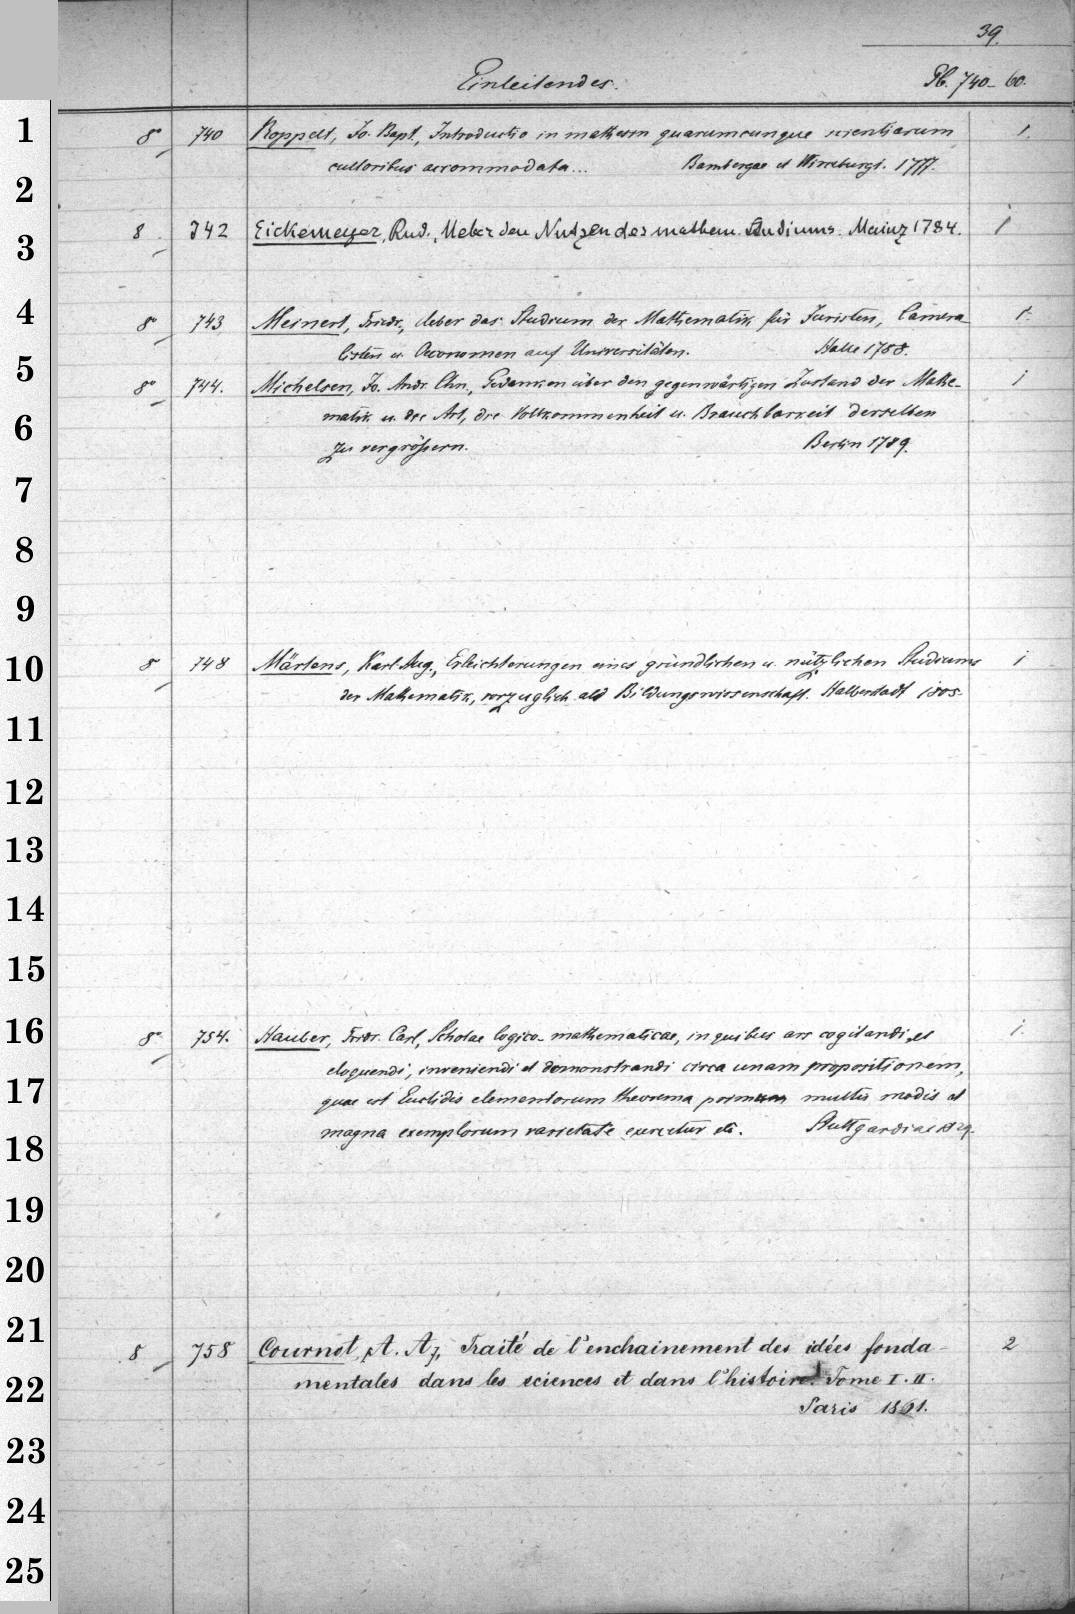 39.
Einleitendes.
Pb. 740-60.
1
8° 740 Roppelt, Jo. Bapt., Introductio in mathesin quarumcunque scientiarum 1.
cultoribus accommodata... Bambergae et Wirceburgi. 1777.
2
8 742 Eickemeyer, Rud., Ueber den Nutzen des mathem. Studiums. Mainz 1784. 1
3
4
8° 743 Meinert, Friedr., Ueber das Studium der Mathematik für Juristen, Camera- 1.
listen u. Oeconomen auf Universitäten. Halle 1788.
5
8° 744. Michelsen, Jo. Andr. Chn., Gedanken über den gegenwärtigen Zustand der Mathe- 1
matik u. der Art, die Vollkommenheit u. Brauchbarkeit derselben
6
zu vergrößern. Berlin 1789.
7
8
9
10
8 748 Märtens, Karl Aug., Erleichterungen eines gründlichen u. nützlichen Studiums 1
der Mathematik, vorzuglich als Bildungswissenschaft. Halberstadt 1805.
11
12
13
14
15
16
8° 754. Hauber, Fridr. Carl, Scholae logico-mathematicae, in quibus ars cogitandi et 1.
eloquendi, inveniendi et demonstrandi circa unam propositionem,
17
quae est Euclidis elementorum theorema primum multis modis et
magna exemplorum varietate exercetur etc. Stuttgardiae 1829.
18
19
20
21
8 758 Cournot, A. A., Traité de l'enchainement des idées fonda- 2
mentales dans les sciences et dans l'histoire. Tome I. II.
22
Paris 1861.
23
24
25